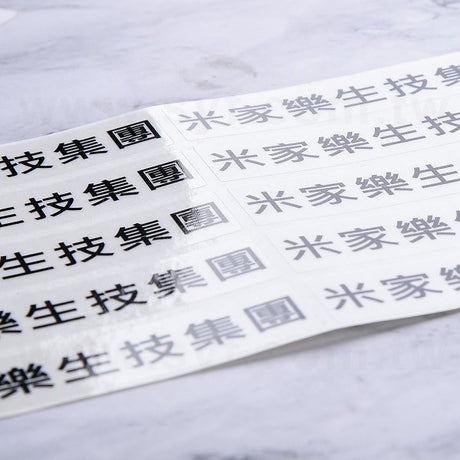 技集團 米家樂生技
生技集團 米家樂生技
生技集團 米家樂生
樂生技集團 米家樂生
樂生技集團 米家樂生